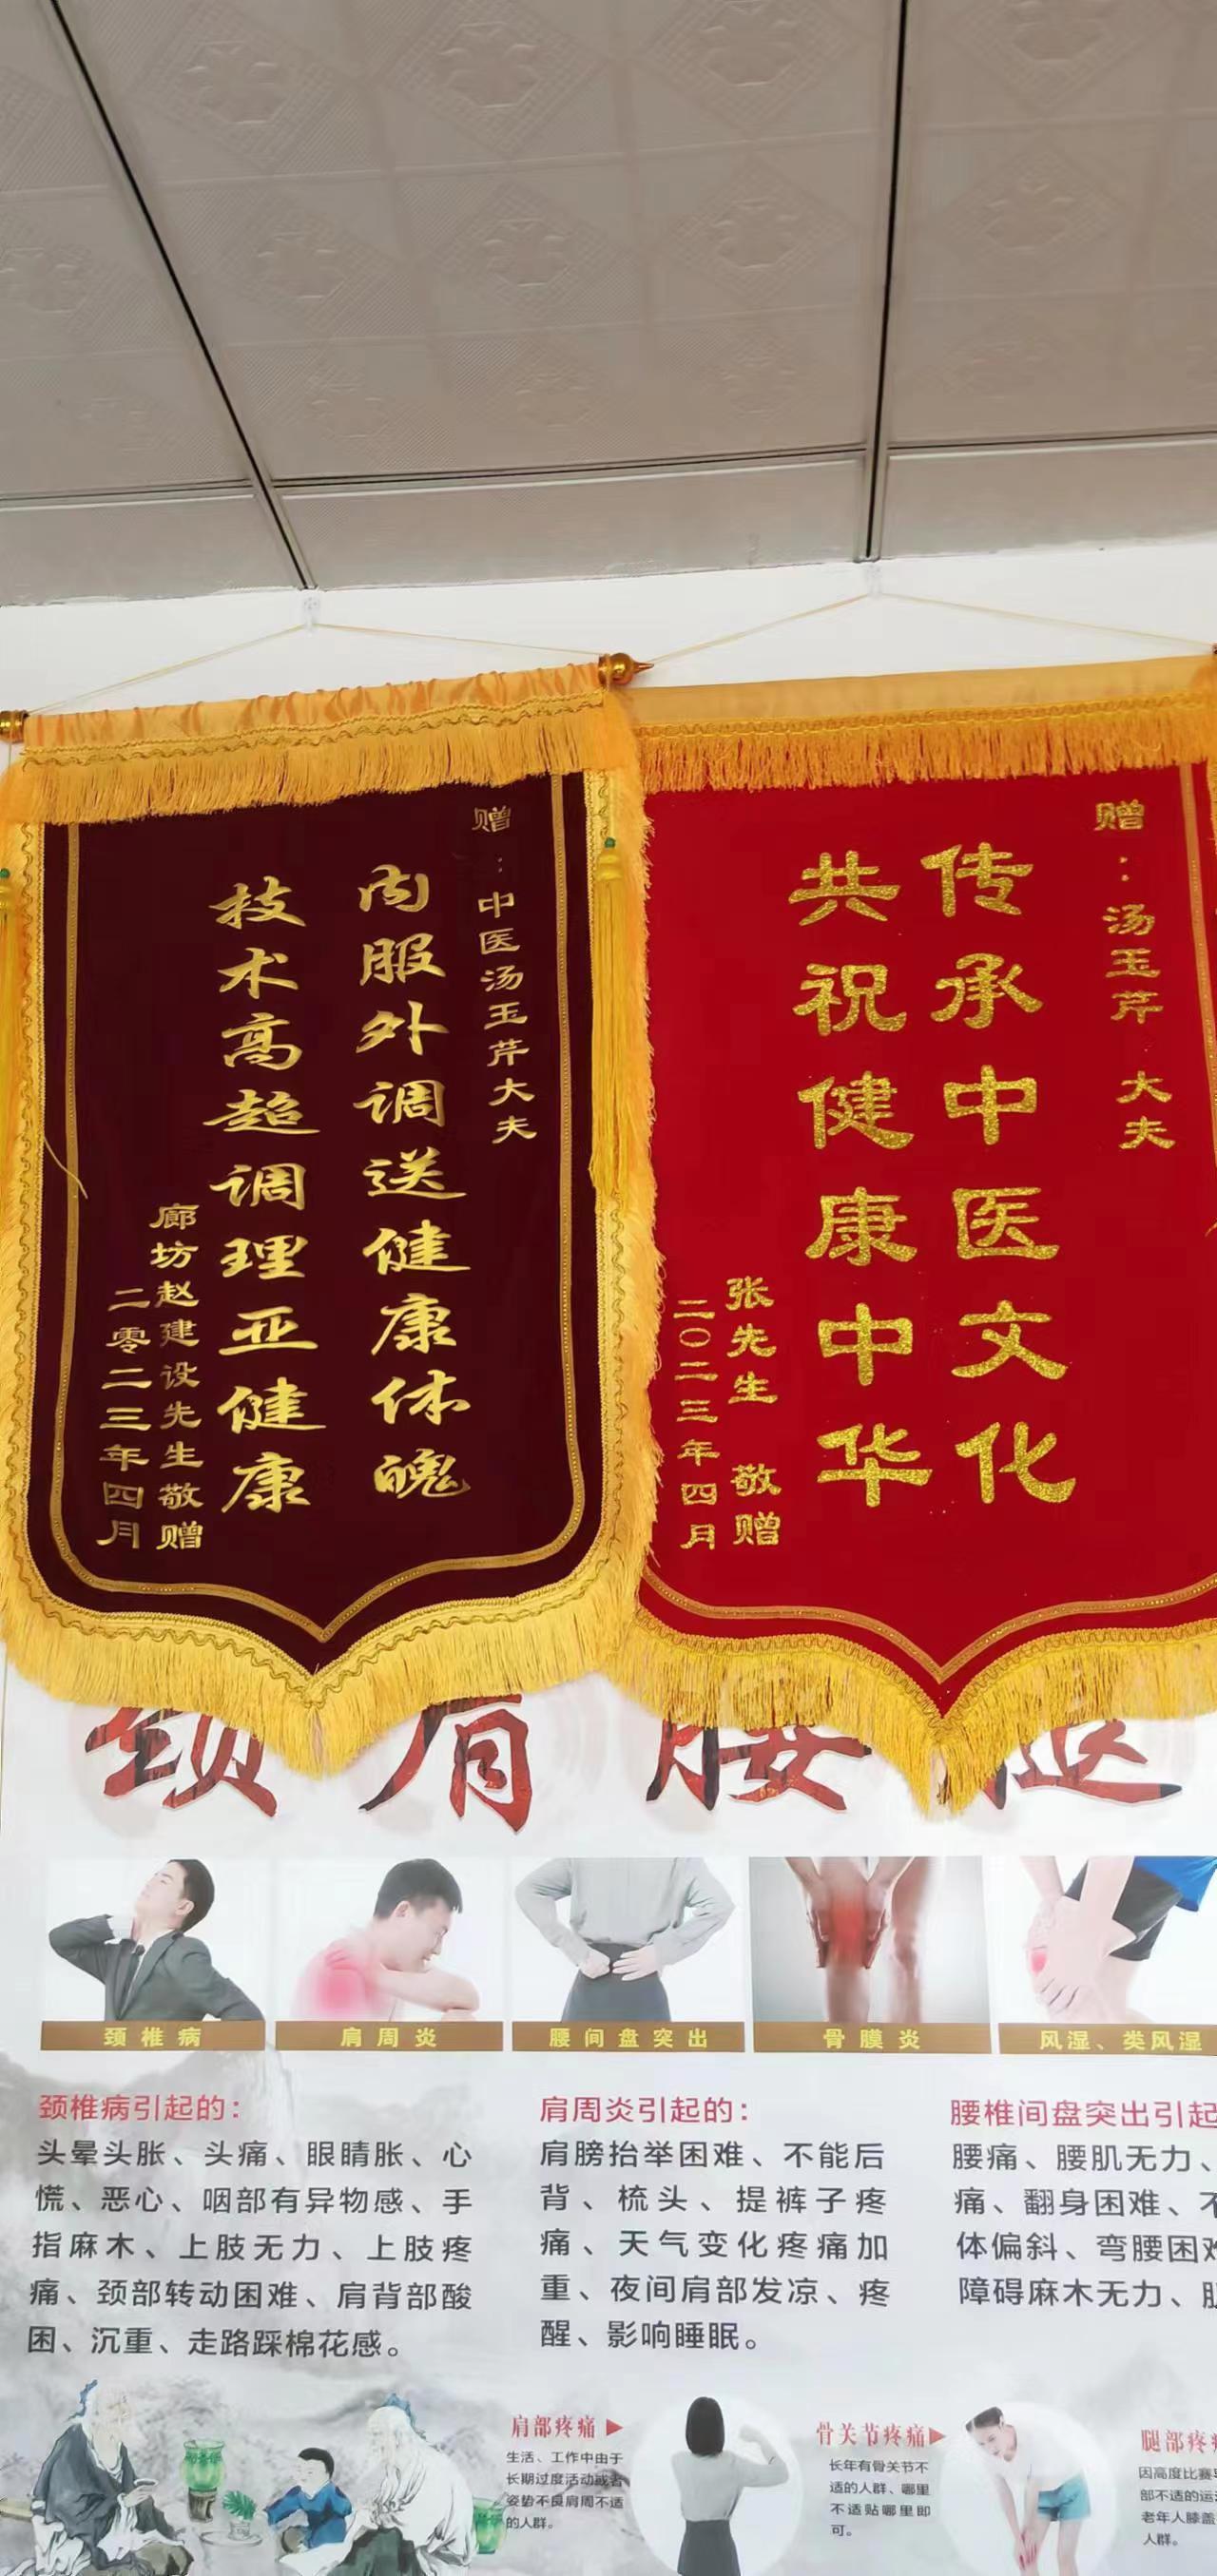 赠：中医汤玉芹大夫
内服外调送健康体魄
技术高超调理亚健康
廊坊赵建设先生敬赠
二零二三年四月
赠：汤玉芹 大夫
传承中医文化
共祝健康中华
张先生 敬赠
二〇二三年四月
颈肩腰腿
颈椎病
肩周炎
腰间盘突出
骨膜炎
风湿、类风湿
颈椎病引起的：
头晕头胀、头痛、眼睛胀、心
慌、恶心、咽部有异物感、手
指麻木、上肢无力、上肢疼
痛、颈部转动困难、肩背部酸
困、沉重、走路踩棉花感。
肩周炎引起的：
肩膀抬举困难、不能后
背、梳头、提裤子疼
痛、天气变化疼痛加
重、夜间肩部发凉、疼
醒、影响睡眠。
腰椎间盘突出引起
腰痛、腰肌无力、
痛、翻身困难、不
体偏斜、弯腰困难
障碍麻木无力、肌
肩部疼痛
生活、工作中由于
长期过度活动或者
姿势不良肩周不适
的人群。
骨关节疼痛
长年有骨关节不
适的人群、哪里
不适贴哪里即
可。
腿部疼痛
因高度比赛
部不适的运
老年人膝盖
人群。